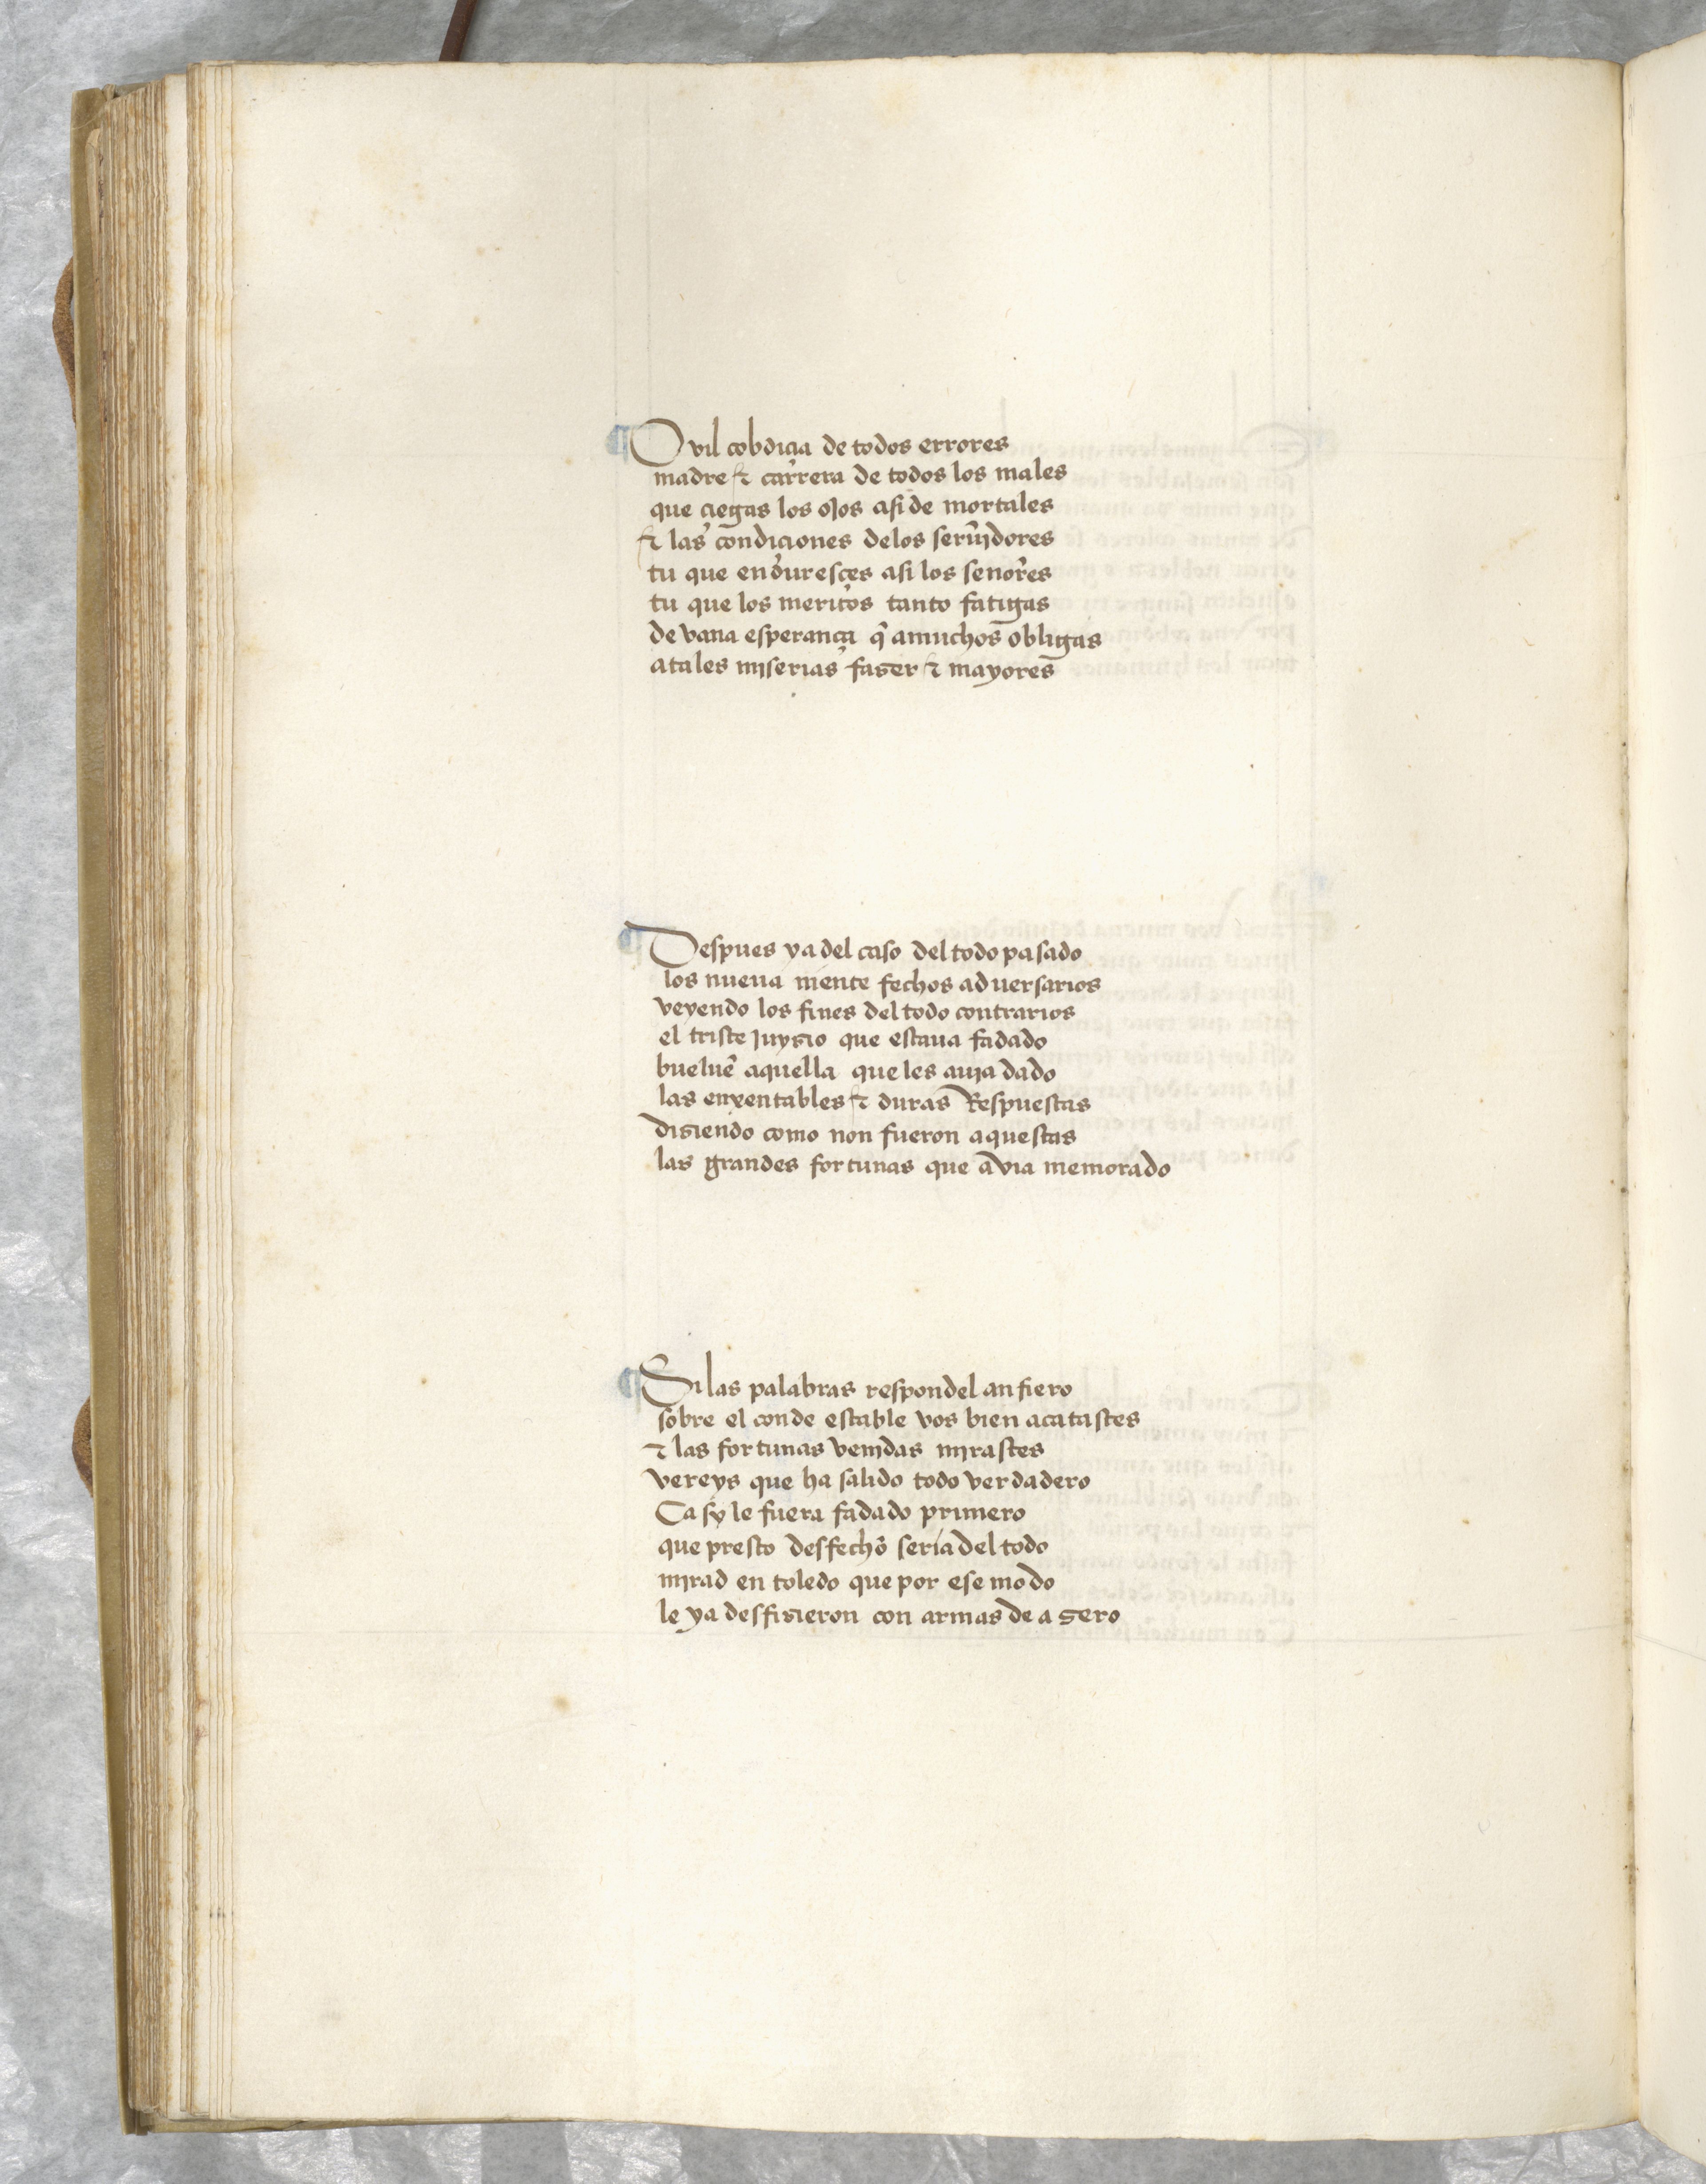 ¶ O vil cobdicia de todos errores
madre & carrera de todos los males
que ciegas los ojos asi de mortales
& las condiciones delos seruidores
tu que enduresces asi los senores
tu que los meritos tanto fatigas
de vana esperança q̃ amuchos obligas
atales miserias faser & mayores
¶ Despues ya del caso del todo pasado
los nueua mente fechos aduersarios
veyendo los fines del todo contrarios
el triste juysio que estaua fadado
bueluẽ aquella que les auia dado
las enxentables & duras Respuestas
disiendo como non fueron aquestas
las grandes fortunas que avia memorado
¶ Si las palabras respondel an fiero
sobre el conde estable vos bien acatastes
& las fortunas venidas mirastes
vereys que ha salido todo verdadero
Ca sy le fuera fadado primero
que presto desfecho seria del todo
mirad en toledo que por ese modo
le ya desfisieron con armas de a sero